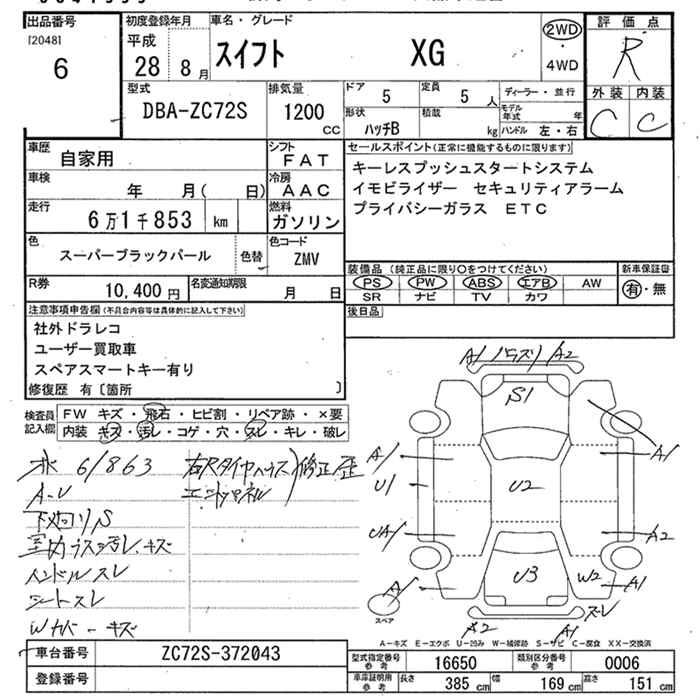 出品番号
[2048]
6
初度登録年月
平成
28 8月
車名・グレード
スイフト XG
2WD
・
4WD
評価点
R
外装 内装
C C
型式
DBA-ZC72S
排気量
1200
CC
ドア
5
定員
5人
形状
ハッチB
積載
kg
ディーラー・並行
モデル年式 年
ハンドル 左・右
車歴
自家用
シフト
FAT
車検
年 月( 日)
冷房
AAC
走行
6万1千853 km
燃料
ガソリン
色
スーパーブラックパール
色替
色コード
ZMV
R券
10,400円
名変通知期限
月 日
セールスポイント(正常に機能するものに限ります)
キーレスプッシュスタートシステム
イモビライザー セキュリティアラーム
プライバシーガラス ETC
装備品(純正品に限り○をつけてください)
PS PW ABS エアB AW
SR ナビ TV カワ
新車保証書
有・無
後日品
注意事項申告欄(不具合内容等は具体的に記入して下さい)
社外ドラレコ
ユーザー買取車
スペアスマートキー有り
修復歴 有〔箇所 〕
検査員記入欄
FW キズ・飛石・ヒビ割・リペア跡・×要
内装 キズ・汚レ・コゲ・穴・スレ・キレ・破レ
61863
A-U
下廻りS
ハンドルスレ
シートスレ
Wカバーキズ
修正歴
A1 A2
S1
A1 A1
U1 U2
UA1 A2
U3 W2 A1
A
スペア
スレ
A2 A1
A-キズ E-エクボ U-凹み W-補修跡 S-サビ C-腐食 XX-交換済
車台番号
ZC72S-372043
登録番号
型式指定番号
参考
16650
類別区分番号
参考
0006
車庫証明用
参考
長さ 385cm 幅 169cm 高さ 151cm